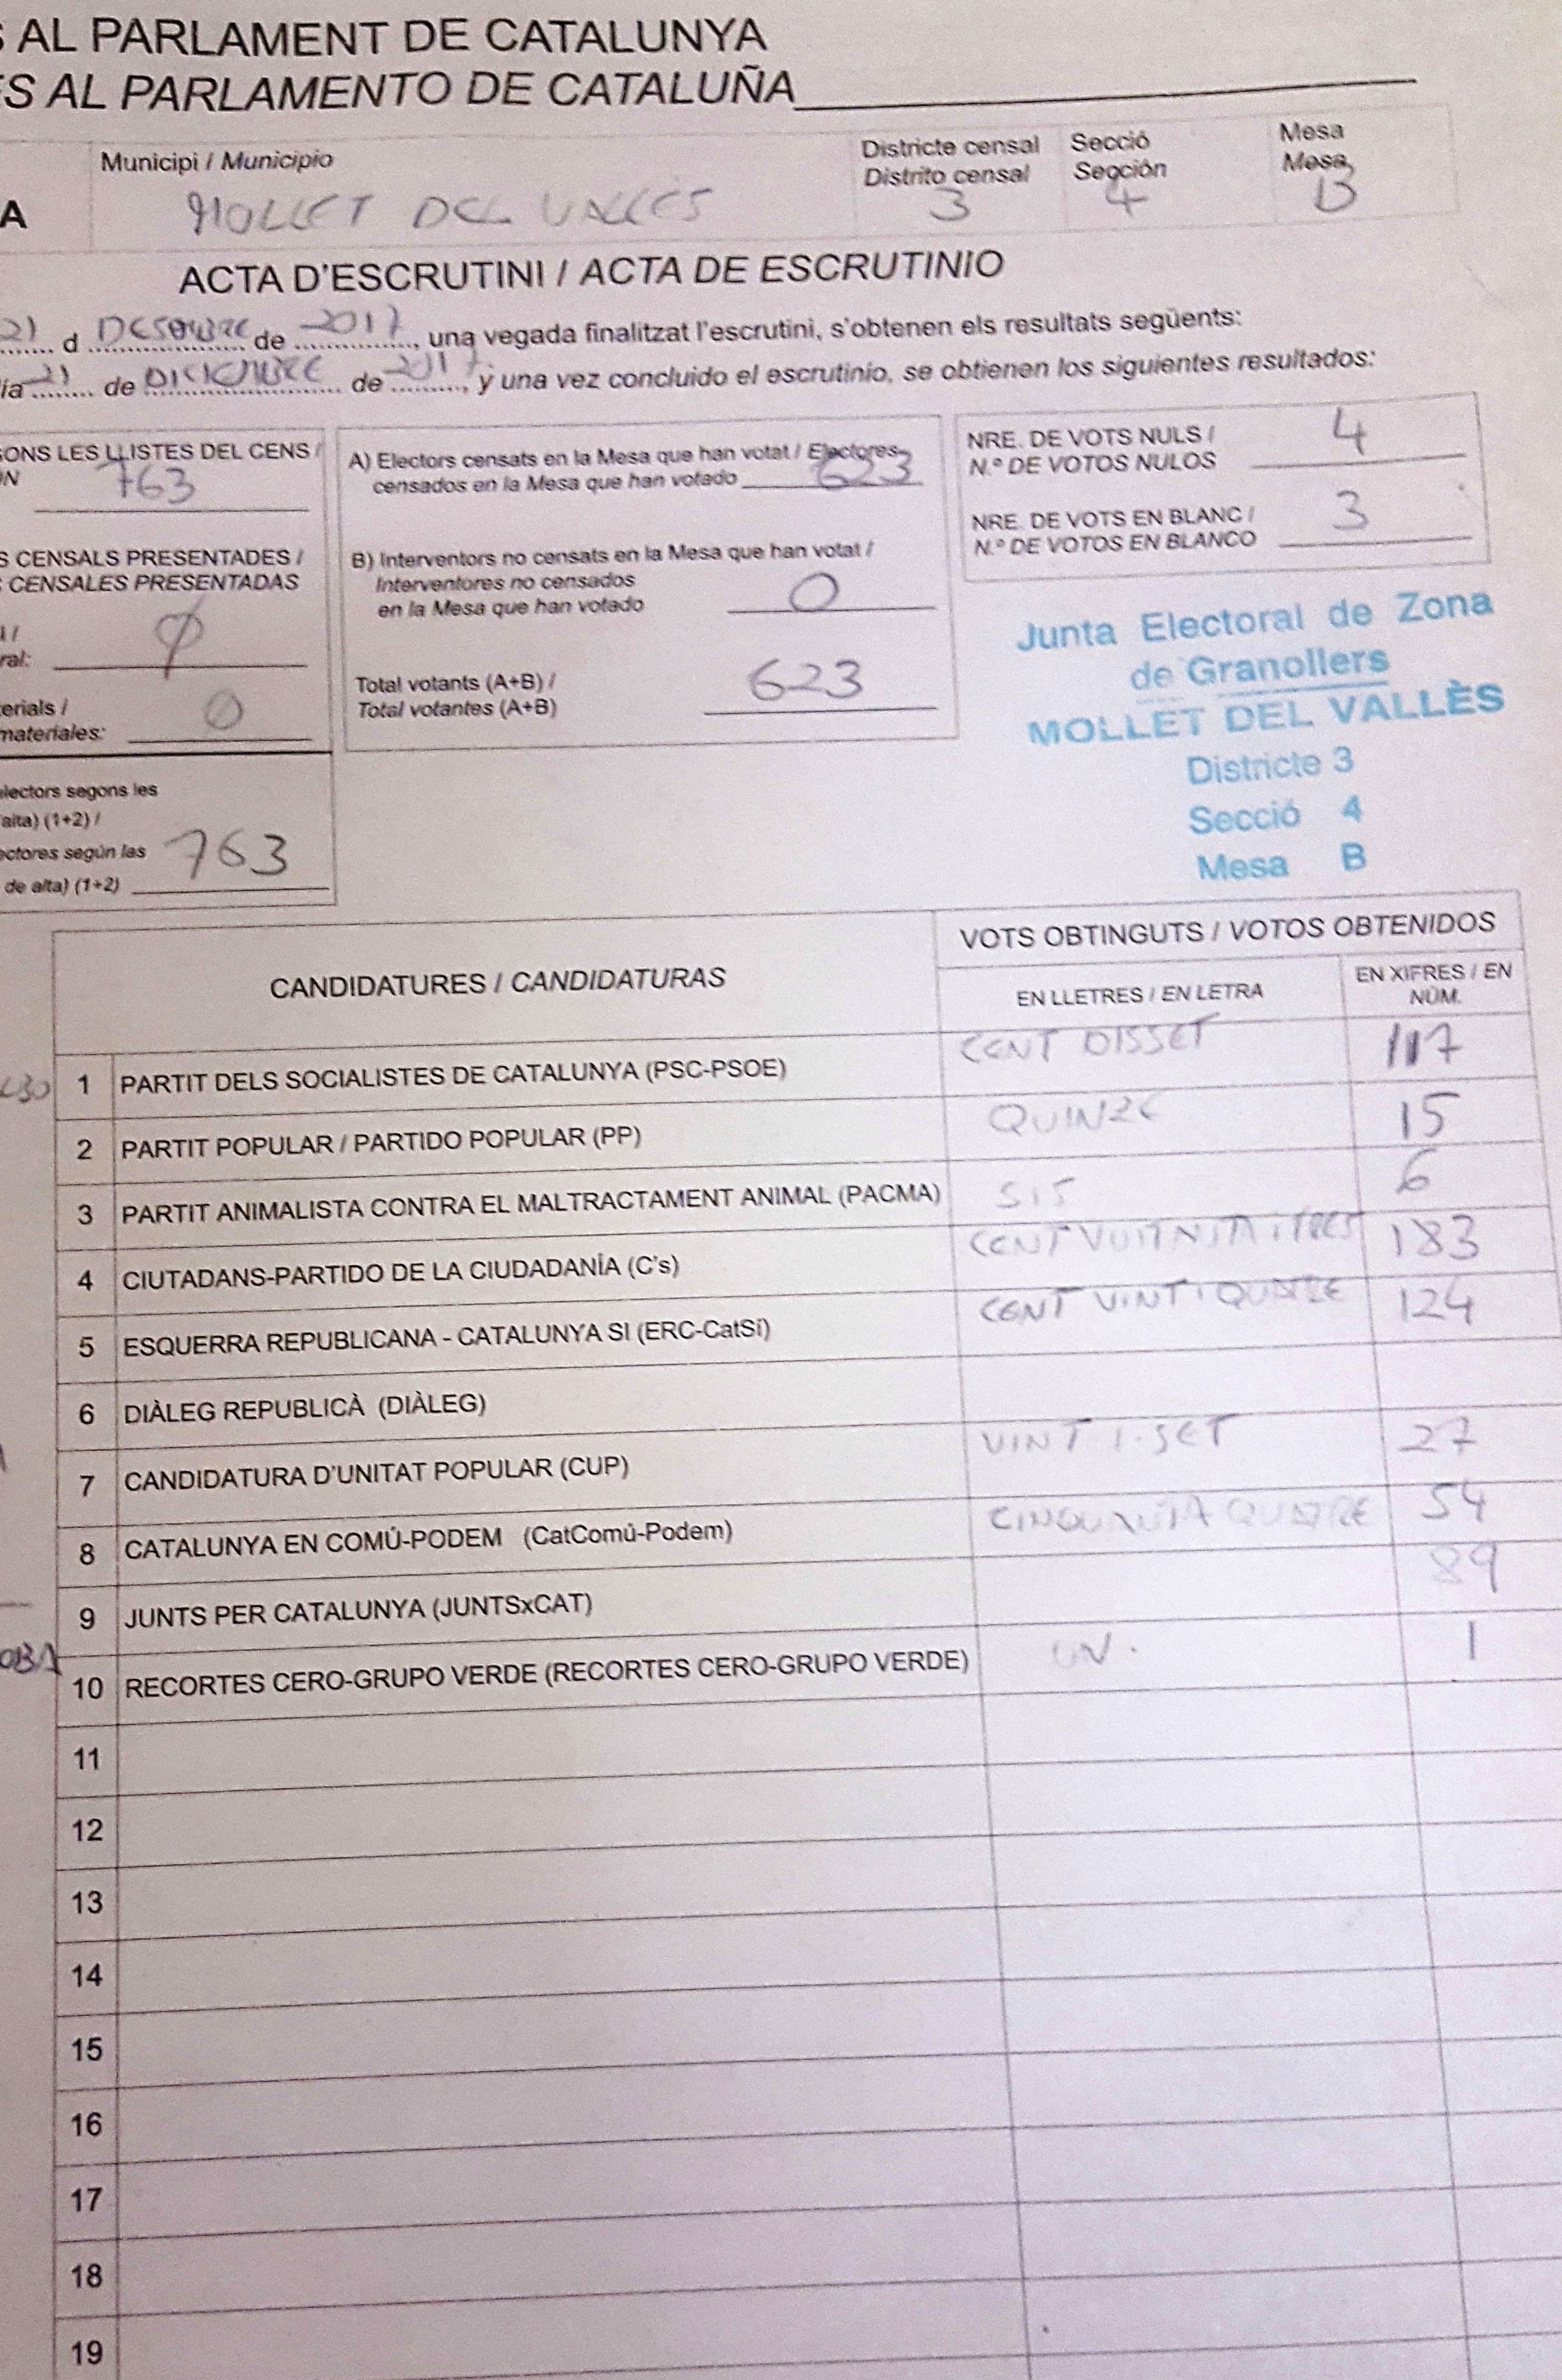 S AL PARLAMENT DE CATALUNYA
ES AL PARLAMENTO DE CATALUÑA
Municipi / Municipio
Districte censal
Distrito censal
Secció
Sección
Mesa
Mesa
A
MOLLET DEL VALLES
3
4
B
ACTA D'ESCRUTINI / ACTA DE ESCRUTINIO
21 d DESEMBRE de 2017, una vegada finalitzat l'escrutini, s'obtenen els resultats següents:
ía 21 de DICIEMBRE de 2017, y una vez concluido el escrutinio, se obtienen los siguientes resultados:
GONS LES LLISTES DEL CENS /
ÓN
763
S CENSALS PRESENTADES /
S CENSALES PRESENTADAS
l /
ral: 0
erials /
materiales: 0
electors segons les
alta) (1+2) /
ectores según las
de alta) (1+2) 763
A) Electors censats en la Mesa que han votat / Electores
censados en la Mesa que han votado 623
B) Interventors no censats en la Mesa que han votat /
Interventores no censados
en la Mesa que han votado 0
Total votants (A+B) /
Total votantes (A+B) 623
NRE. DE VOTS NULS /
N.º DE VOTOS NULOS 4
NRE. DE VOTS EN BLANC /
N.º DE VOTOS EN BLANCO 3
Junta Electoral de Zona
de Granollers
MOLLET DEL VALLÈS
Districte 3
Secció 4
Mesa B
CANDIDATURES / CANDIDATURAS
VOTS OBTINGUTS / VOTOS OBTENIDOS
EN LLETRES / EN LETRA
EN XIFRES / EN
NÚM.
1 PARTIT DELS SOCIALISTES DE CATALUNYA (PSC-PSOE) CENT DISSET 117
2 PARTIT POPULAR / PARTIDO POPULAR (PP) QUINZE 15
3 PARTIT ANIMALISTA CONTRA EL MALTRACTAMENT ANIMAL (PACMA) SIS 6
4 CIUTADANS-PARTIDO DE LA CIUDADANÍA (C's) CENT VUITANTA i TRES 183
5 ESQUERRA REPUBLICANA - CATALUNYA SI (ERC-CatSí) CENT VINT i QUATRE 124
6 DIÀLEG REPUBLICÀ (DIÀLEG)
7 CANDIDATURA D'UNITAT POPULAR (CUP) VINT-I-SET 27
8 CATALUNYA EN COMÚ-PODEM (CatComú-Podem) CINQUANTA QUATRE 54
9 JUNTS PER CATALUNYA (JUNTSxCAT) 89
10 RECORTES CERO-GRUPO VERDE (RECORTES CERO-GRUPO VERDE) UN. 1
11
12
13
14
15
16
17
18
19